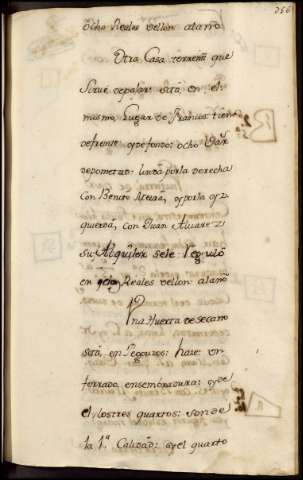 356
ocho Reales vellon al año
Otra Casa terrena que
sirve de pajar: sita en el
mismo Lugar de Frances tiene
de frente y de fondo: ocho Var.s
de pometas: linda por la derecha
con Benito Alvar.z, y por la yz-
quierda, con Juan Alvarez
su Alquiler se le reguló
en ocho Reales vellon al año
Una Huerta de secano
sita, en: haze un
ferrado, en sembradura: y de
el, los tres quartos: son de
la 1.ª Calidad: y el quarto